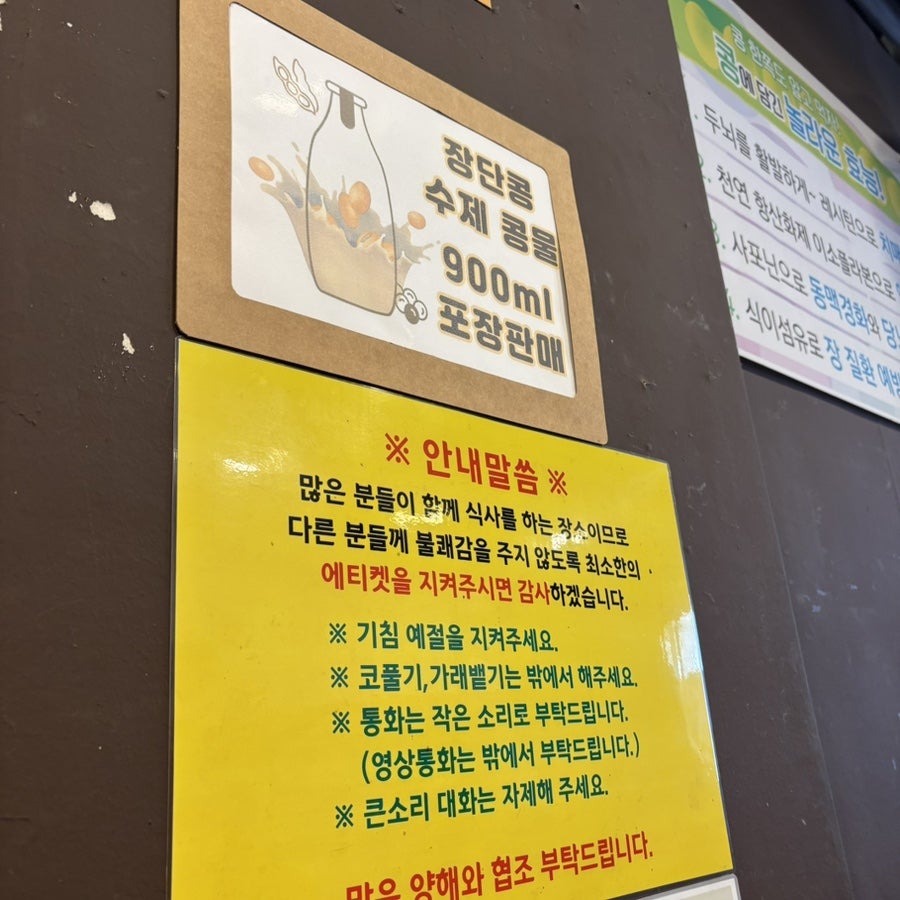 장단콩
수제 콩물
900ml
포장판매
※ 안내말씀 ※
많은 분들이 함께 식사를 하는 장소이므로
다른 분들께 불쾌감을 주지 않도록 최소한의
에티켓을 지켜주시면 감사하겠습니다.
※ 기침 예절을 지켜주세요.
※ 코풀기,가래뱉기는 밖에서 해주세요.
※ 통화는 작은 소리로 부탁드립니다.
(영상통화는 밖에서 부탁드립니다.)
※ 큰소리 대화는 자제해 주세요.
많은 양해와 협조 부탁드립니다.
콩 한쪽도 알고 먹자!
콩에 담긴 놀라운 효능!
두뇌를 활발하게~ 레시틴으로 치매
2. 천연 항산화제 이소플라본으로
3. 사포닌으로 동맥경화와 당뇨
4. 식이섬유로 장 질환 예방